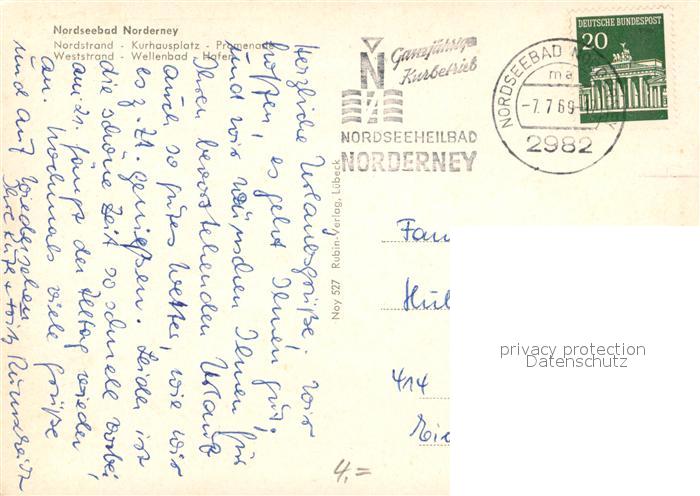 Nordseebad Norderney
Nordstrand - Kurhausplatz - Promenade
Weststrand - Wellenbad - Hafen
Herzliche Urlaubsgrüße. Wir
hoffen, es geht Ihnen gut!
Und wir wünschen Ihnen für
Ihren bevorstehenden Urlaub
auch so gutes Wetter, wie wir
es z. Zt. genießen. Leider ist
die schöne Zeit so schnell vorbei
am 21. fängt der Alltag wieder
an. Nochmals viele Grüße
und auf Wiedersehen
Ihre + Fritz
Noy 527 Rubin-Verlag, Lübeck
Ganzjährig
Kurbetrieb
N
NORDSEEHEILBAD
NORDERNEY
NORDSEEBAD NO
ma
-7.7.69
2982
DEUTSCHE BUNDESPOST
20
Fam
Hül
414
privacy protection
Datenschutz
4,=